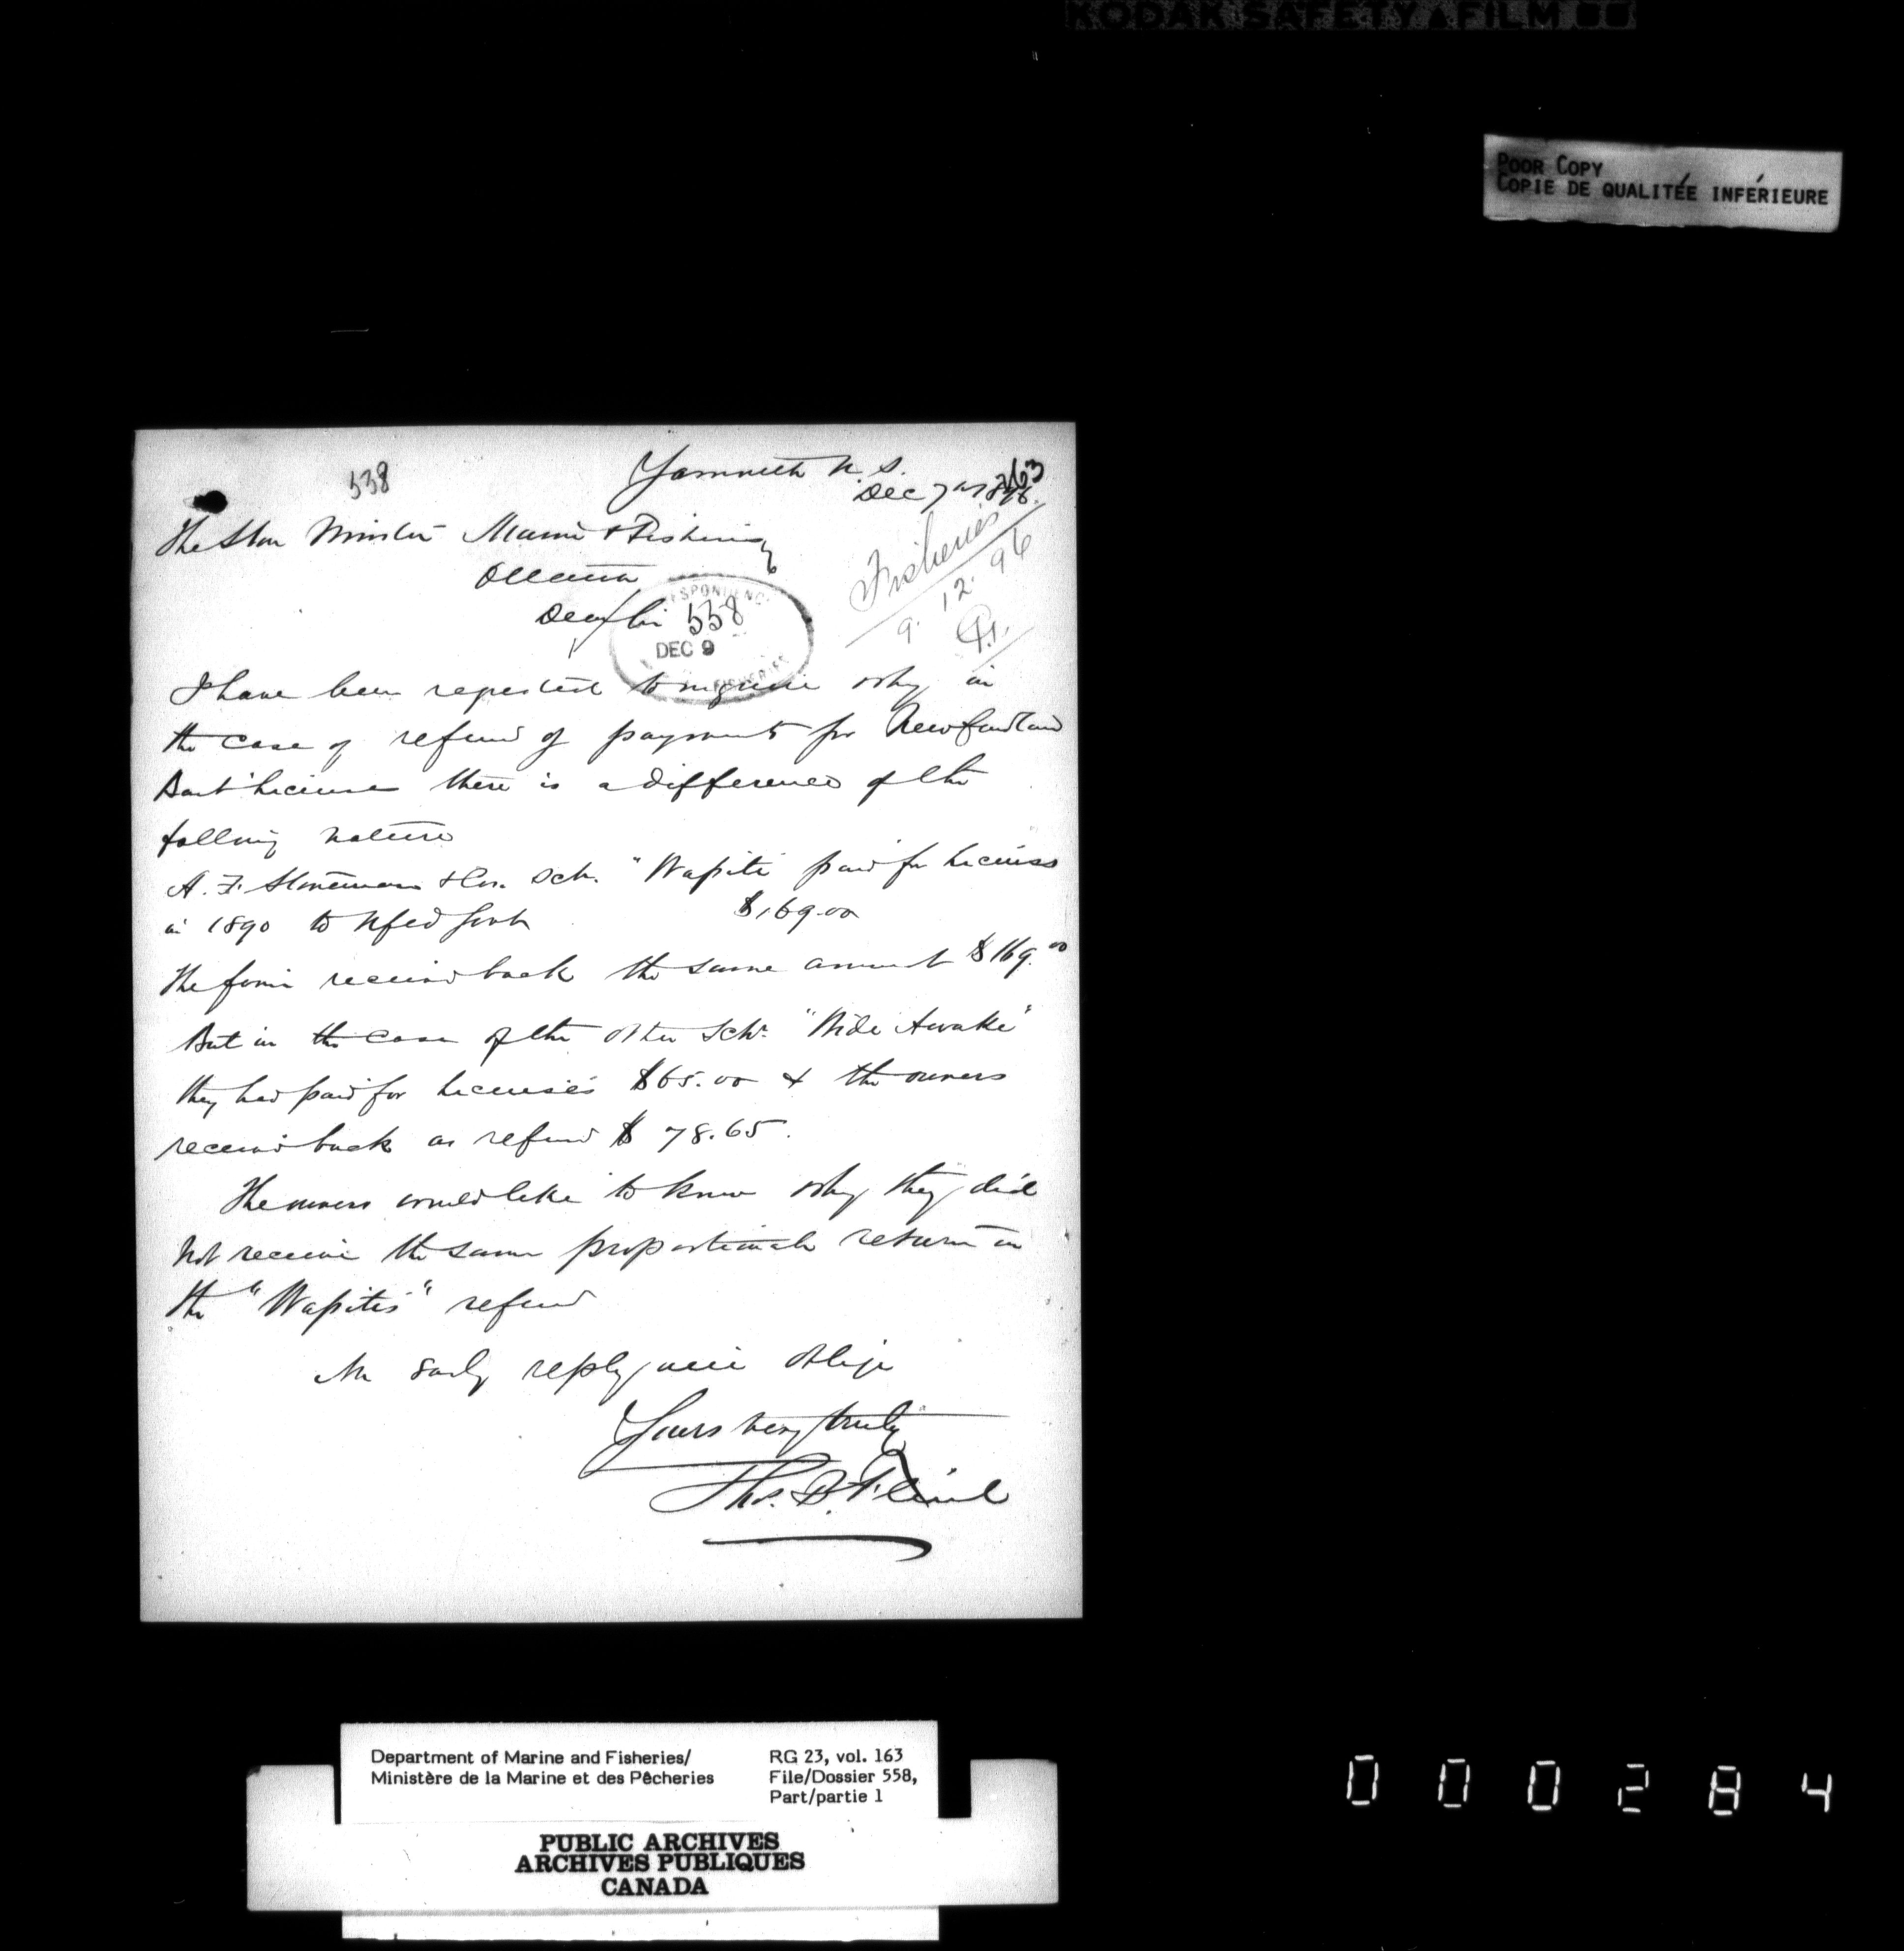 KODAK SAFETY FILM
POOR COPY
COPIE DE QUALITÉE INFÉRIEURE
538
263
Yarmouth N. S.
Dec 7th 1896.
The Hon Minister Marine & Fisheries
Ottawa
Fisheries
9. 12. 96
Dear Sir
558
DEC 9
FISHERIES
I have been requested to enquire why in
the case of refund of payments for Newfoundland
Bait licenses there is a difference of the
following nature
A. F. Stoneman & Co. Sch. "Wapiti" paid for licenses
in 1890 to Nfld Govt $169.00
The firm received back the same amount $169.00
But in the case of the other Schr. "Wide Awake"
they had paid for licenses $65.00 & the owners
received back as refund $78.65.
The owners would like to know why they did
not receive the same proportionate return in
the "Wapiti's" refund
An early reply will oblige
Yours very truly
Thos. B. Flint
Department of Marine and Fisheries/
Ministère de la Marine et des Pêcheries
RG 23, vol. 163
File/Dossier 558,
Part/partie 1
PUBLIC ARCHIVES
ARCHIVES PUBLIQUES
CANADA
000284